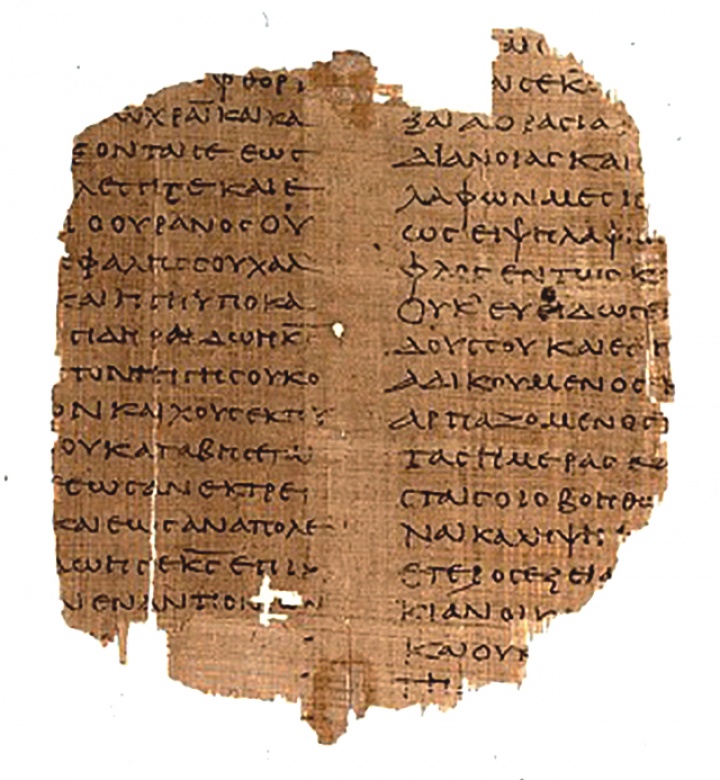 ΦΘΟΡΙ
ΩΧΡΑΙ ΚΑΙ ΚΑ
ΞΟΝΤΑΙ ϹΕ ΕΩϹ
ΛΕϹΗ ϹΕ ΚΑΙ Ε
Ι Ο ΟΥΡΑΝΟϹ ΟΥ
ΕΦΑΛΗϹ ϹΟΥ ΧΑΛ
ΚΑΙ Η ΓΗ ΥΠΟΚΑ
ϹΙΔΗΡΑ ΔΩΗ ΚϹ
ΤΟΝ ΤΗ ΓΗ ϹΟΥ ΚΟ
ΟΝ ΚΑΙ ΧΟΥϹ ΕΚ ΤΟΥ
ΟΥ ΚΑΤΑΒΗϹΕΤΑΙ
ΕΩϹ ΑΝ ΕΚΤΡΕΙ
ΚΑΙ ΕΩϹ ΑΝ ΑΠΟΛΕ
ΔΩΗ ϹΕ ΚϹ ΕΠΙΚ
Ν ΕΝΑΝΤΙΟΝ ΤΩΝ
ΑΙ ϹΕ Κ
ΞΑΙ ΑΟΡΑϹΙΑ
ΔΙΑΝΟΙΑϹ ΚΑΙ
ΛΑΦΩΝ ΜΕϹΗ
ΩϹ ΕΙ ΨΗΛΑΦΗ
ΦΛΟϹ ΕΝ ΤΩΙ ϹΚ
ΟΥΚ ΕΥΟΔΩϹΕΙ
ΔΟΥϹ ϹΟΥ ΚΑΙ ΕϹΗ
ΑΔΙΚΟΥΜΕΝΟϹ
ΑΡΠΑΖΟΜΕΝΟϹ
ΤΑϹ ΗΜΕΡΑϹ ΚΑ
ϹΤΑΙ ϹΟΙ Ο ΒΟΗΘΩ
ΝΑΙΚΑ ΛΗΨΗ
ΕΤΕΡΟϹ ΕΞΕΙ Α
ΚΙΑΝ ΟΙΚ
ΚΑΙ ΟΥΚ
ΤΗ